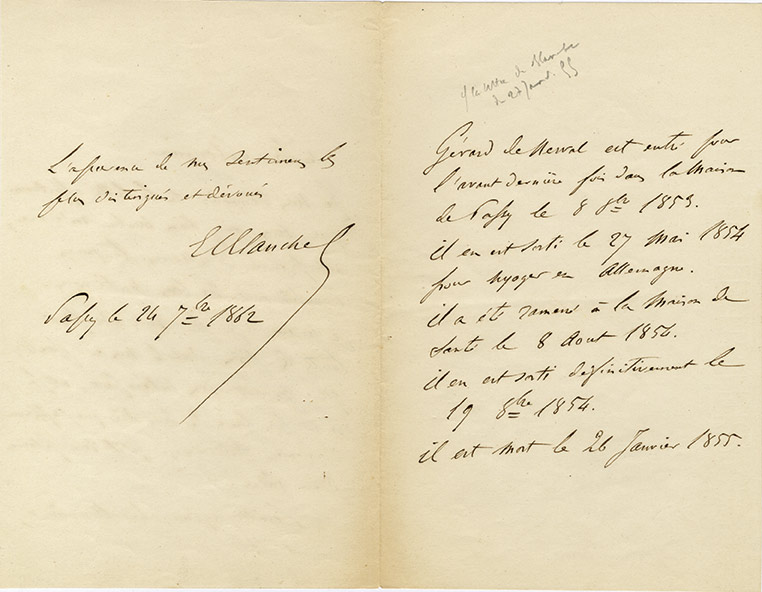 L'assurance de mes sentimens les
plus distingués et dévoués
E Blanche
Passy le 24 7bre 1862
de
Gérard de Nerval est entré pour
l'avant dernière fois dans la Maison
de Passy le 8 8bre 1853.
il en est sorti le 27 Mai 1854
pour voyager en Allemagne.
il a été ramené à la Maison de
Santé le 8 Aout 1854.
il en est sorti définitivement le
19 8bre 1854.
il est mort le 26 Janvier 1855.